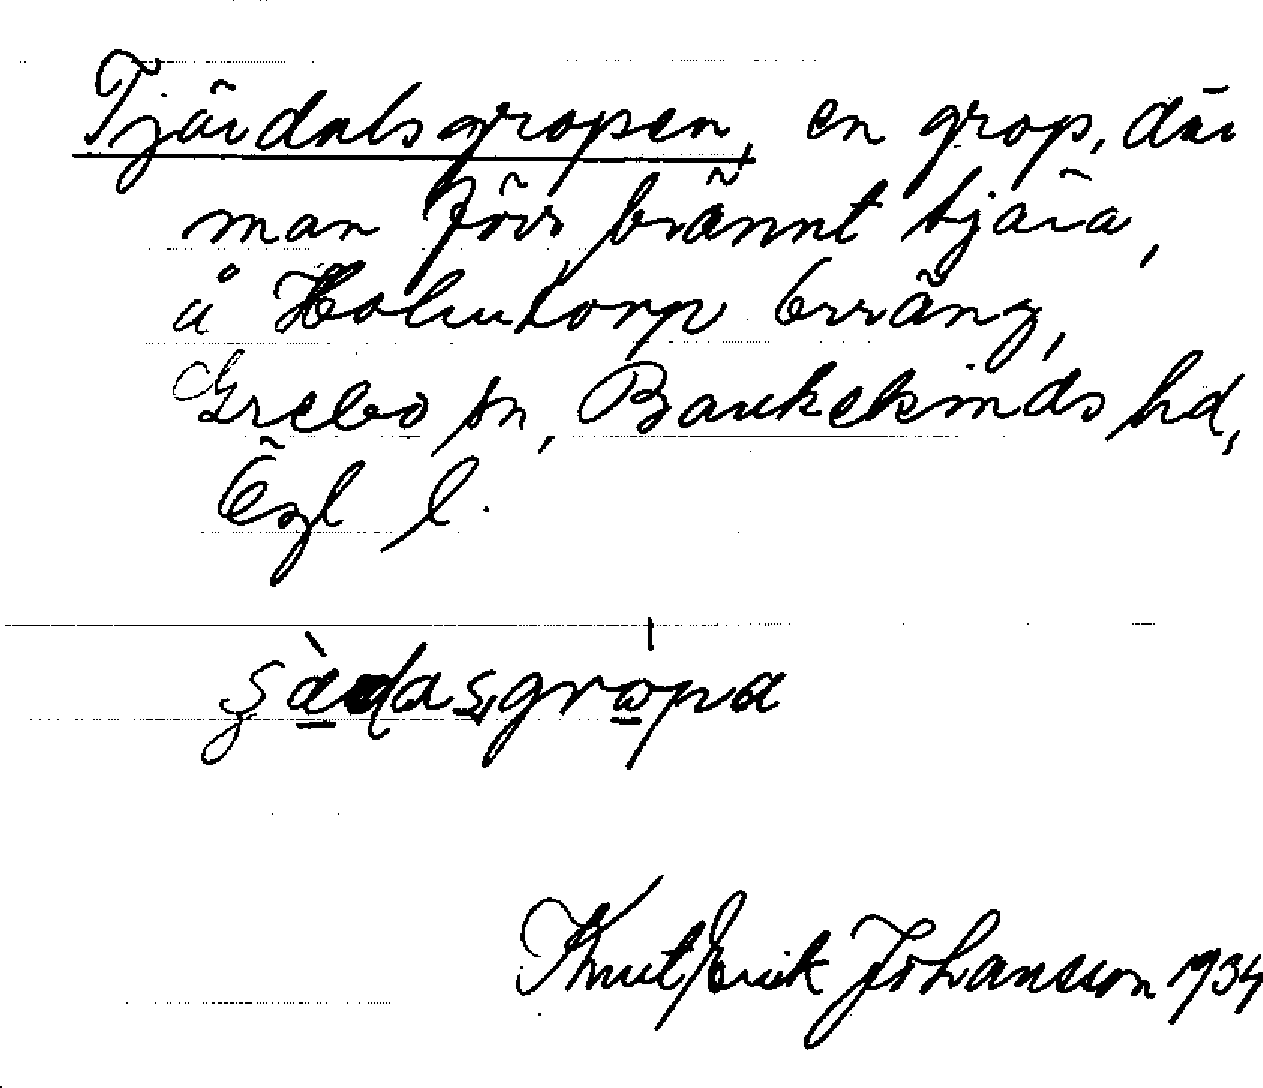 Tjärdalsgropen, en grop, där
man förr brännt tjära,
å Holmtorp terräng,
Grebo sn, Bankekinds hd,
Ögl l.
Knut Erik Johansson 1934